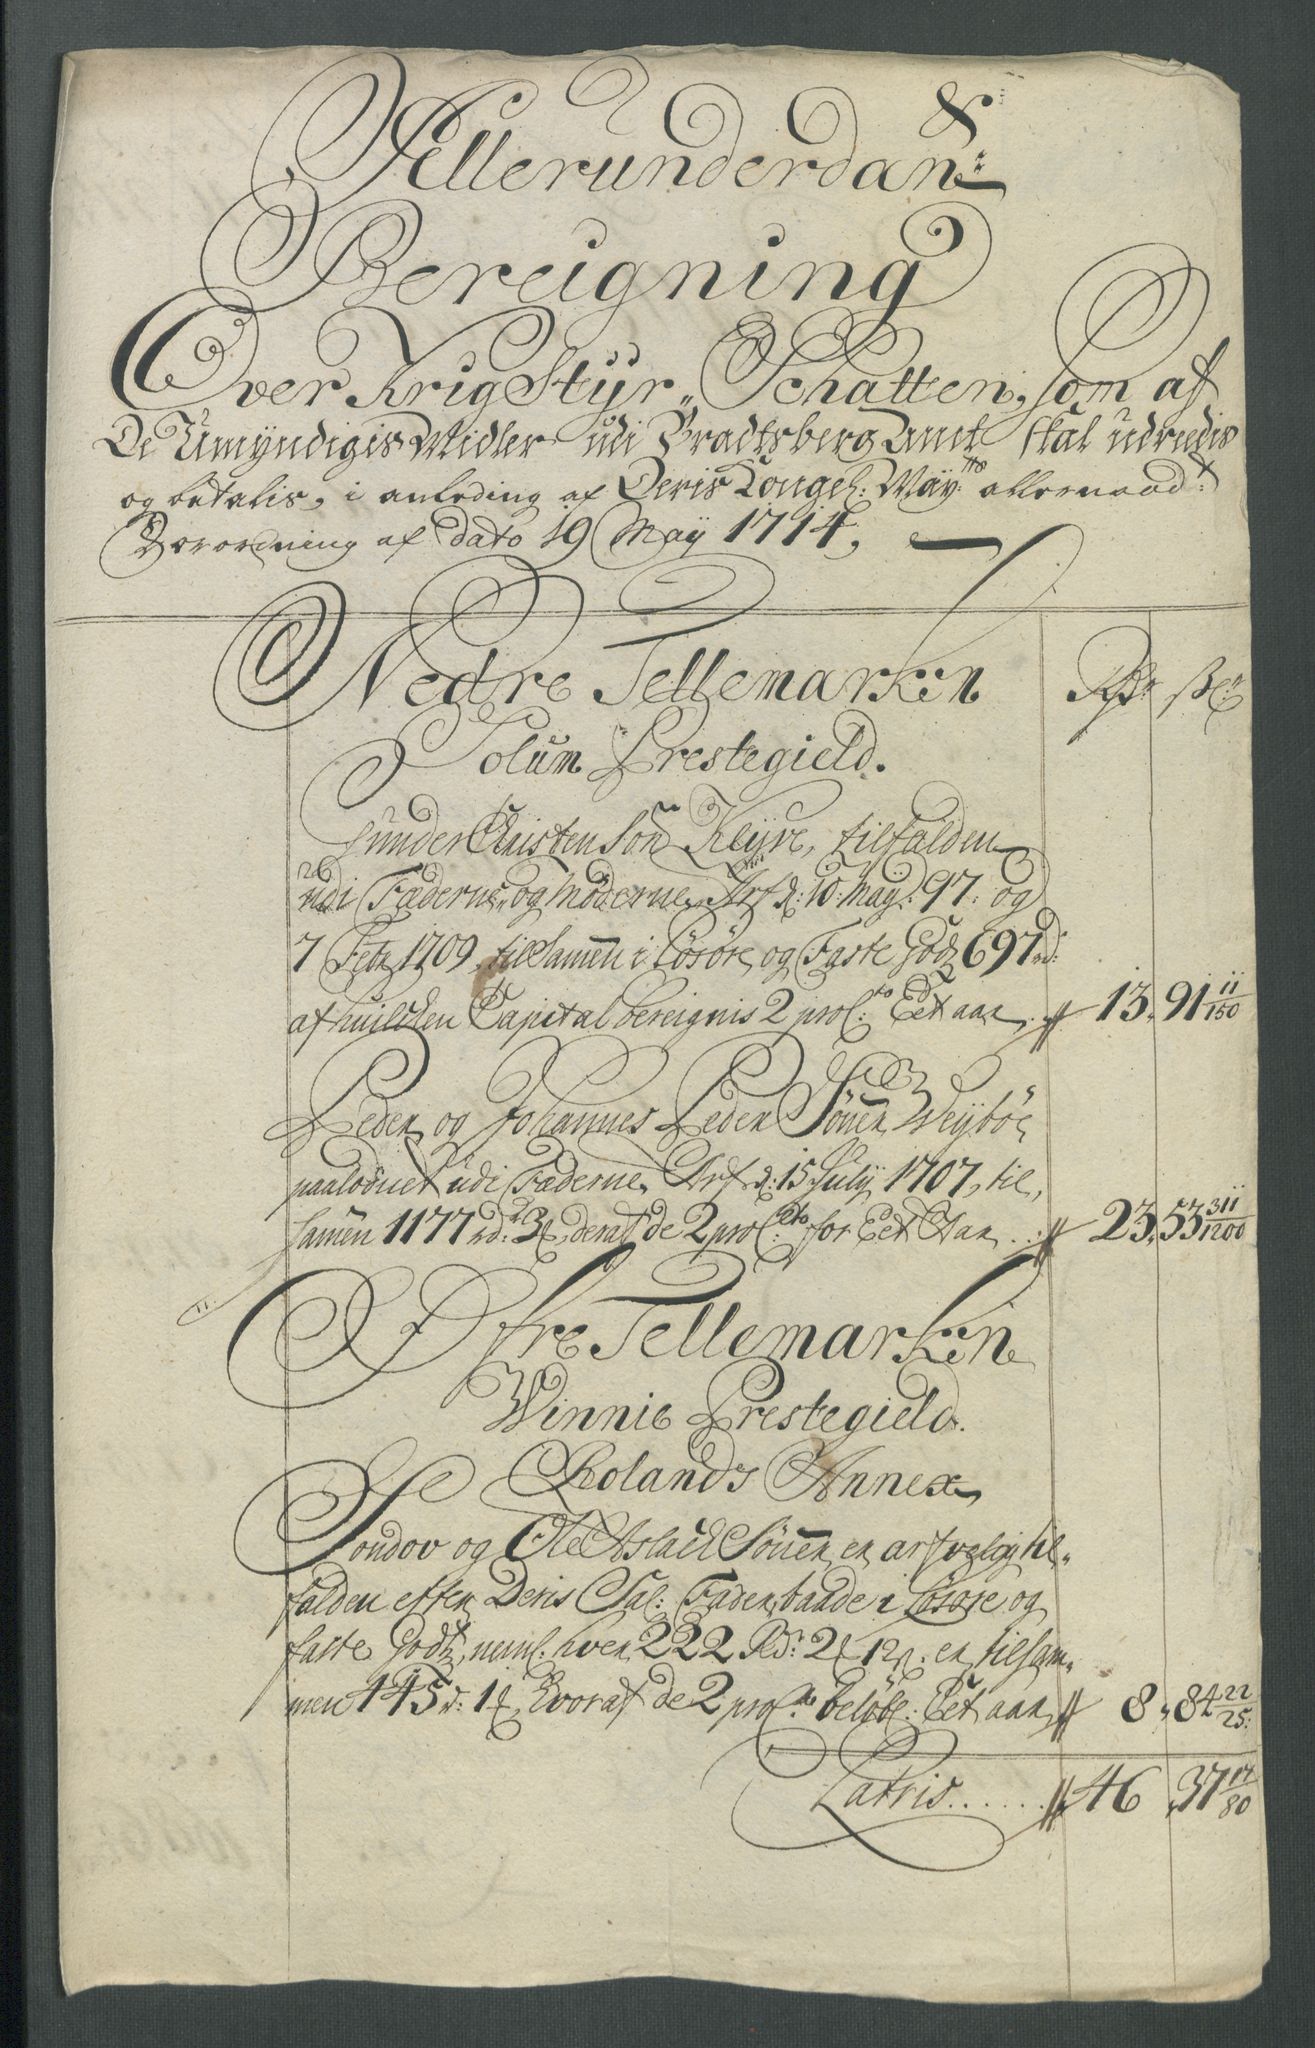 Allerunderdan:
Bereigning
Over KrigStyr„ Schatten, som af
De Umyndigis Midler udi Bradtsberg Amt skal udredis
og betalis, i anleding af Deris Kongel: May:tts allernaad:
Forordning af dato 19 May 1714,
Nedre Tellemarken
Rdr ßl:
Solum Prestegield.
Gunder Christensøn Klyve, tilfalden
udi Fæderne„ og Möderne Arf d: 10: May: 97: og
7 Febr 1709, tilsamen i Lösöre og Faste Godtz 697 rd:
af huilchen Capital bereignis 2 proC:to Eet aar 13„ 91 11/150
Peder og Johannes Peder Sönner Weyböe
paalodnet udi Fæderne Arf d: 15 July 1707, til„
samen 1177 rd: 3 deraf de 2 proC:to for Eet Aar . . 23„ 53 311/1200
Öfre Tellemarken
Winnie Prestegield.
Rolands Annex
Sondov og Ole Aslach Sönner er arfvelig til„
falden efter Deris Sal: Fader, baade i Lösöre og
faste Godtz, neml: hver 222 Rd: 2 12 ß: er tilsam„
men 445 r: 1 Hvoraf de 2 proC:to belöbr: Eet aar 8„ 84 22/25:
Latris . . . . . . 46„ 37 17/80